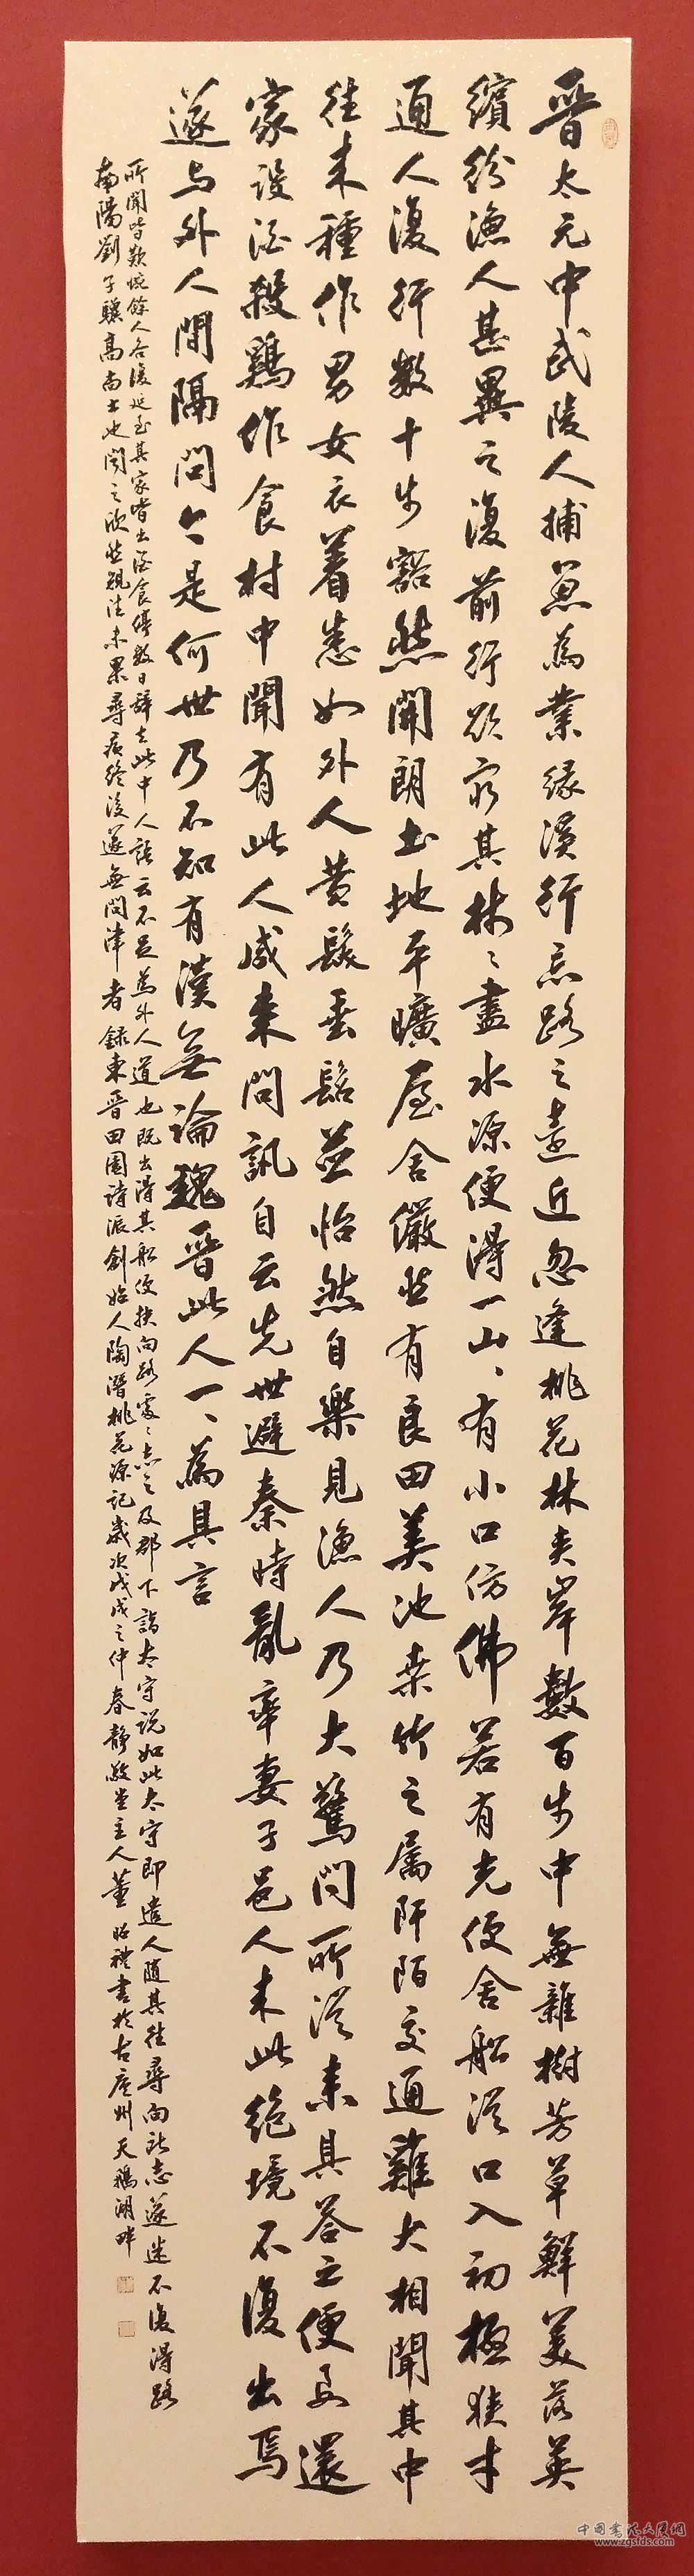 晋太元中武陵人捕魚為業緣溪行忘路之遠近忽逢桃花林夹岸數百步中無雜樹芳草鮮美落英
繽紛漁人甚異之復前行欲穷其林〻盡水源便得一山〻有小口仿佛若有光便舍船從口入初極狭才
通人復行數十步豁然開朗土地平曠屋舍儼然有良田美池桑竹之属阡陌交通雞犬相聞其中
往来種作男女衣着悉如外人黄髮垂髫並怡然自樂見漁人乃大驚問所從来具答之便要還
家設酒殺鷄作食村中聞有此人咸来問訊自云先世避秦時亂率妻子邑人来此绝境不復出焉
遂与外人間隔問今是何世乃不知有漢無論魏晋此人一〻為具言
所聞皆歎惋餘人各復延至其家皆出酒食停數日辞去此中人語云不足為外人道也既出得其船便扶向路處〻志之及郡下詣太守说如此太守即遣人随其往尋向所志遂迷不復得路
南陽劉子驥高尚士也聞之欣然規往未果尋病终後遂無問津者録東晋田園詩派創始人陶潛桃花源記歲次戊戌之仲春静敬堂主人董昭禮書於古廬州天鵝湖畔
www.zgsfds.com